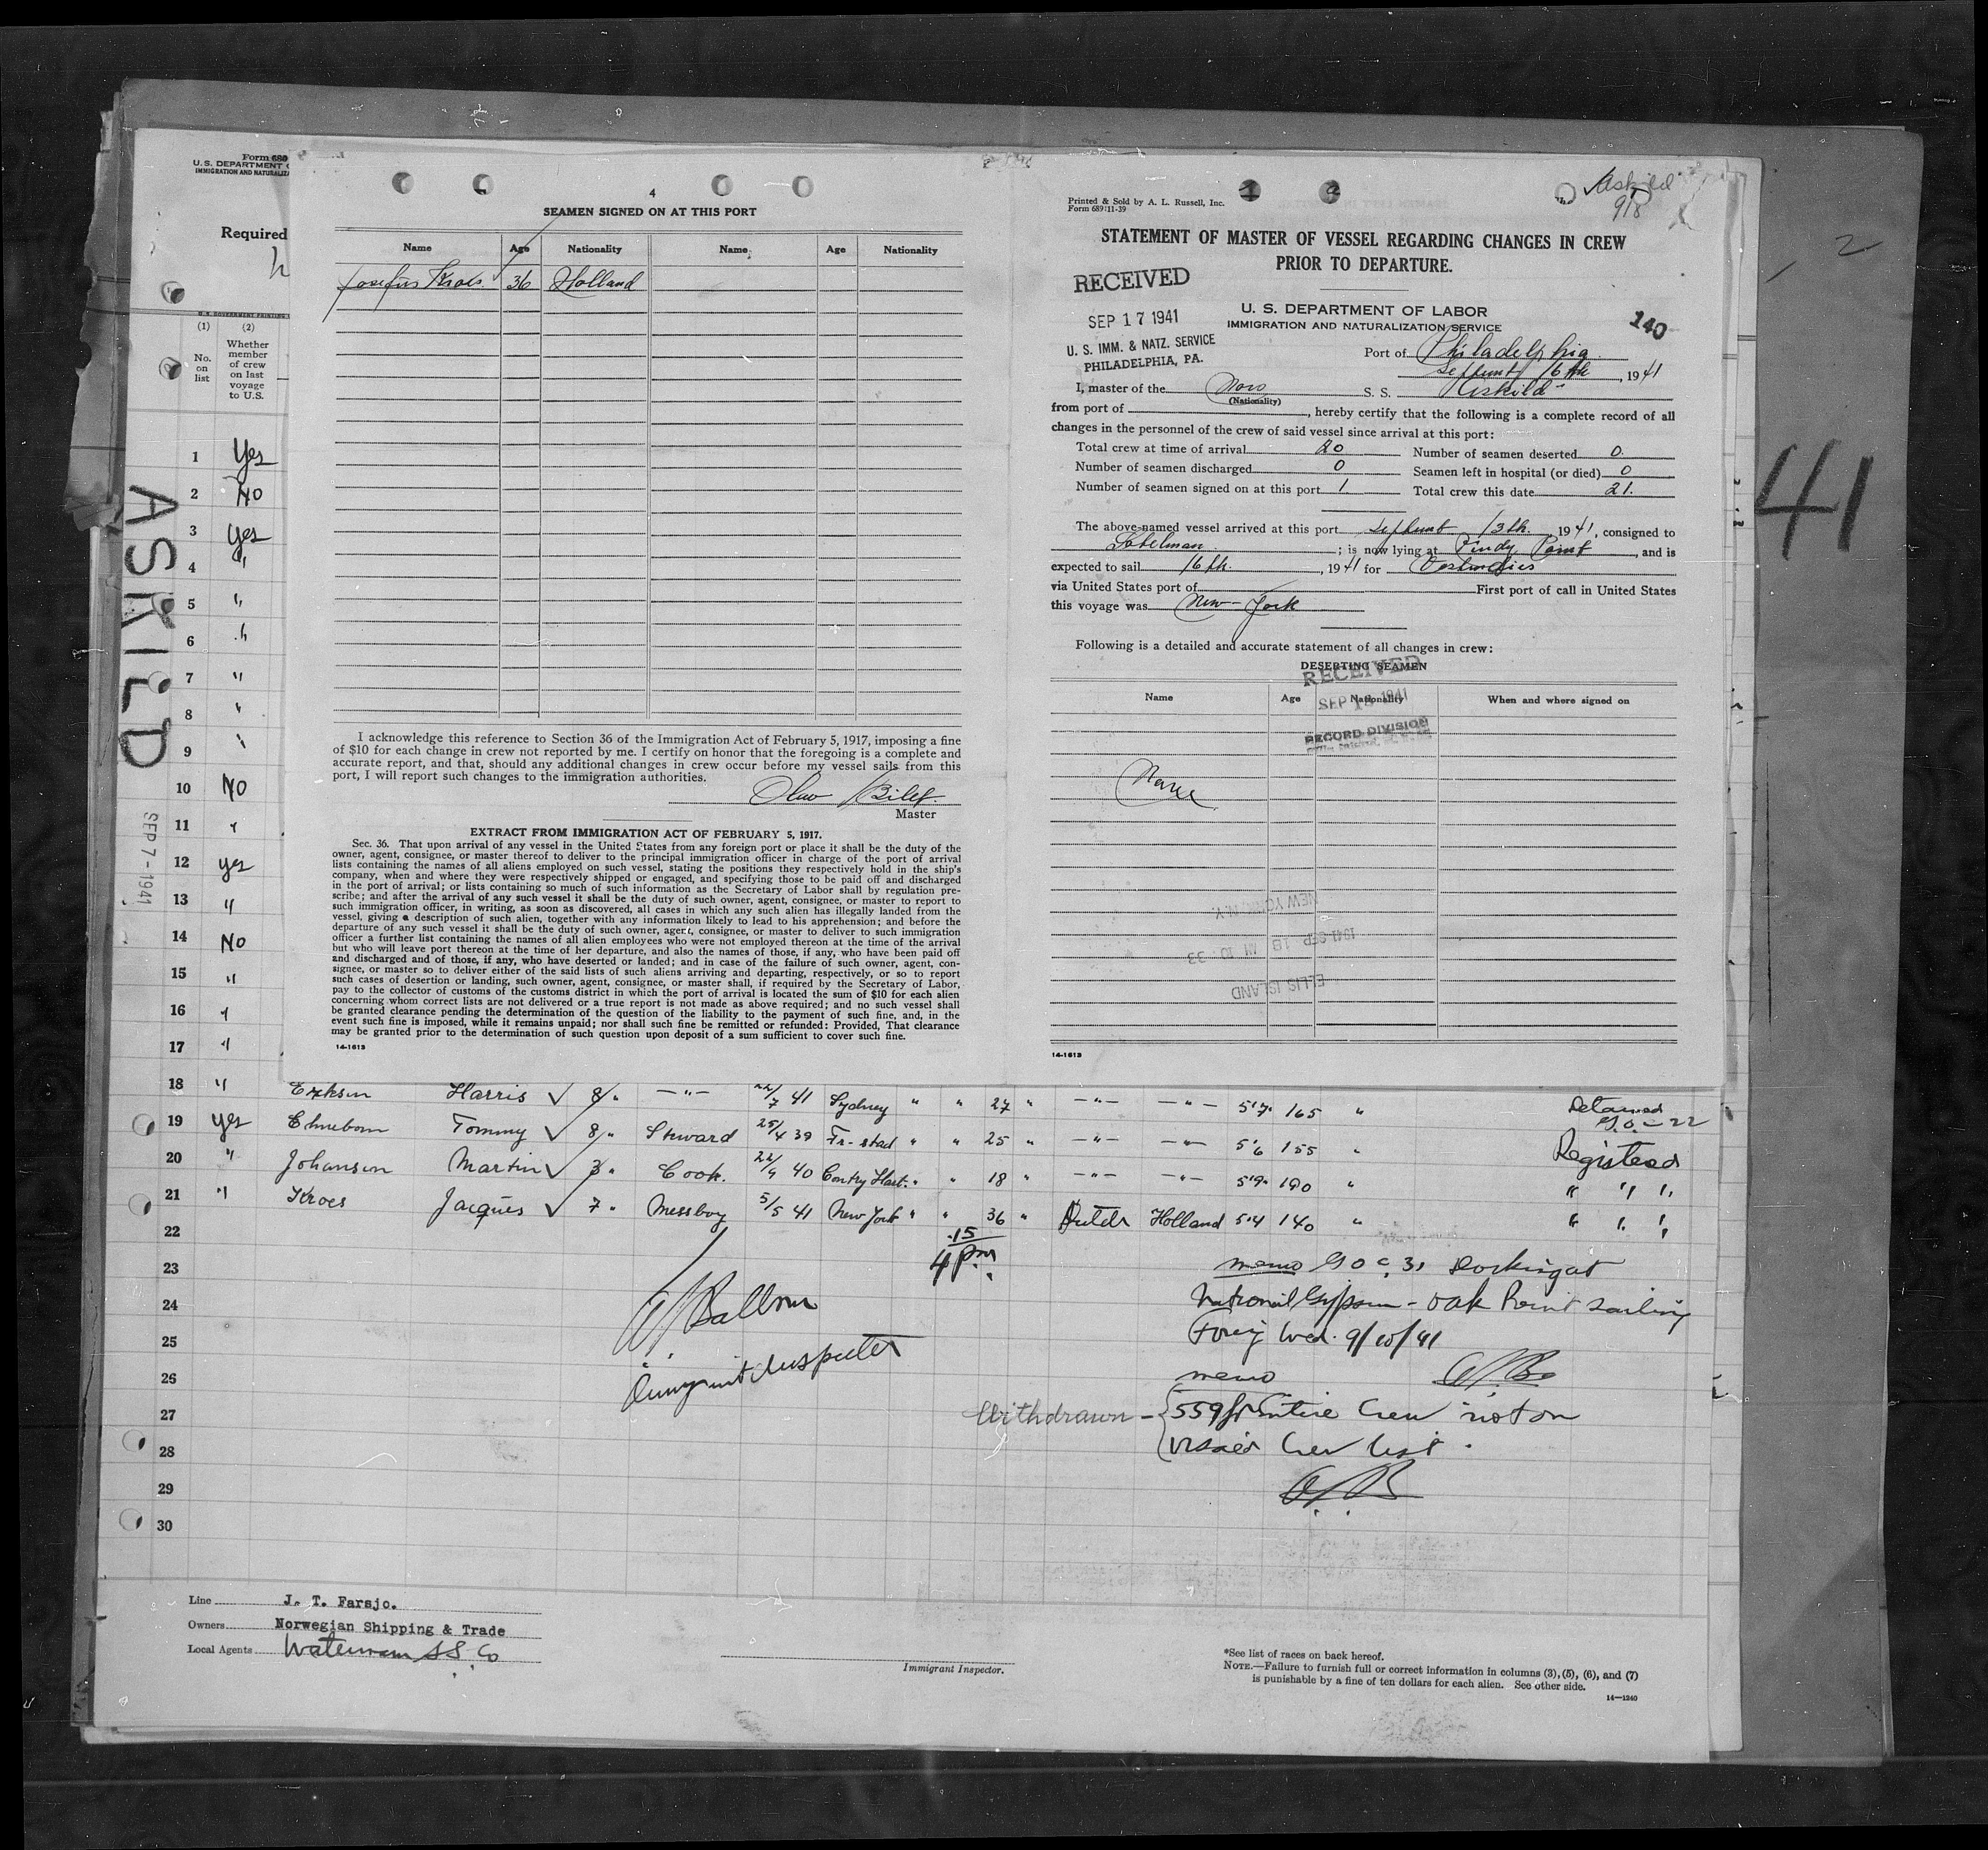 Form 680
U. S. DEPARTMENT
IMMIGRATION AND NATURALIZA
Required
(1) (2)
No. on list
Whether member of crew on last voyage to U.S.
1 Yes
2 NO
3 Yes
4 "
5 "
6 "
7 "
8 "
9 "
10 NO
11 "
12 yes
13 "
14 NO
15 "
16 "
17 "
ASKILD
SEP 7 - 1941
4
SEAMEN SIGNED ON AT THIS PORT
Name Age Nationality Name Age Nationality
Josefus Kroes 36 Holland
I acknowledge this reference to Section 36 of the Immigration Act of February 5, 1917, imposing a fine
of $10 for each change in crew not reported by me. I certify on honor that the foregoing is a complete and
accurate report, and that, should any additional changes in crew occur before my vessel sails from this
port, I will report such changes to the immigration authorities.
Olav
Master
EXTRACT FROM IMMIGRATION ACT OF FEBRUARY 5, 1917.
Sec. 36. That upon arrival of any vessel in the United States from any foreign port or place it shall be the duty of the
owner, agent, consignee, or master thereof to deliver to the principal immigration officer in charge of the port of arrival
lists containing the names of all aliens employed on such vessel, stating the positions they respectively hold in the ship's
company, when and where they were respectively shipped or engaged, and specifying those to be paid off and discharged
in the port of arrival; or lists containing so much of such information as the Secretary of Labor shall by regulation pre-
scribe; and after the arrival of any such vessel it shall be the duty of such owner, agent, consignee, or master to report to
such immigration officer, in writing, as soon as discovered, all cases in which any such alien has illegally landed from the
vessel, giving a description of such alien, together with any information likely to lead to his apprehension; and before the
departure of any such vessel it shall be the duty of such owner, agent, consignee, or master to deliver to such immigration
officer a further list containing the names of all alien employees who were not employed thereon at the time of the arrival
but who will leave port thereon at the time of her departure, and also the names of those, if any, who have been paid off
and discharged and of those, if any, who have deserted or landed; and in case of the failure of such owner, agent, con-
signee, or master so to deliver either of the said lists of such aliens arriving and departing, respectively, or so to report
such cases of desertion or landing, such owner, agent, consignee, or master shall, if required by the Secretary of Labor,
pay to the collector of customs of the customs district in which the port of arrival is located the sum of $10 for each alien
concerning whom correct lists are not delivered or a true report is not made as above required; and no such vessel shall
be granted clearance pending the determination of the question of the liability to the payment of such fine, and, in the
event such fine is imposed, while it remains unpaid; nor shall such fine be remitted or refunded: Provided, That clearance
may be granted prior to the determination of such question upon deposit of a sum sufficient to cover such fine.
14-1613
Askild
9/18
Printed & Sold by A. L. Russell, Inc.
Form 689:11-39
STATEMENT OF MASTER OF VESSEL REGARDING CHANGES IN CREW
PRIOR TO DEPARTURE.
RECEIVED
SEP 17 1941
U. S. IMM. & NATZ. SERVICE
PHILADELPHIA, PA.
U. S. DEPARTMENT OF LABOR
IMMIGRATION AND NATURALIZATION SERVICE
140
Port of Philadelphia
Septemb 16th, 1941
I, master of the Norw S. S. "Askild"
(Nationality)
from port of , hereby certify that the following is a complete record of all
changes in the personnel of the crew of said vessel since arrival at this port:
Total crew at time of arrival 20 Number of seamen deserted 0.
Number of seamen discharged 0 Seamen left in hospital (or died) 0
Number of seamen signed on at this port 1. Total crew this date 21.
The above-named vessel arrived at this port Septemb 13th. 1941, consigned to
; is now lying at Point , and is
expected to sail 16th. , 1941 for Vestindies
via United States port of First port of call in United States
this voyage was New-York
Following is a detailed and accurate statement of all changes in crew:
DESERTING SEAMEN
RECEIVED
SEP 1 1941
RECORD DIVISION
Name Age Nationality When and where signed on
None
NEW YORK N.Y.
1941 SEP 18 AM 10 33
ELLIS ISLAND
14-1613
2
41
18 " Erikson Harris √ 8 " —"— 22/7 41 Sydney " " 27 " —"— —"— 5'7" 165 " Detained G.O.-22
19 yes Ehnebom Tommy √ 8 " Steward 25/4 39 Fr-stad " " 25 " —"— —"— 5'6 155 " Registered
20 " Johansen Martin √ 3 " Cook. 22/9 40 " " 18 " —"— —"— 5'9" 190 " " " "
21 " Kroes Jacques √ 7 " Messboy 5/5 41 New York " " 36 " Dutch Holland 5'4 140 " " " "
22
23
24
25
26
27
28
29
30
4 15 pm
Immigrant Inspector
memo G O C 31 Docking at
National Gypsum - Oak Point sailing
Foreig Wed. 9/10/41
memo
Withdrawn - 559 for Entire Crew not on
visaed Crew List.
Line J. T. Farsjo.
Owners Norwegian Shipping & Trade
Local Agents Waterman S S Co
Immigrant Inspector.
*See list of races on back hereof.
NOTE.—Failure to furnish full or correct information in columns (3), (5), (6), and (7)
is punishable by a fine of ten dollars for each alien. See other side.
14—1240